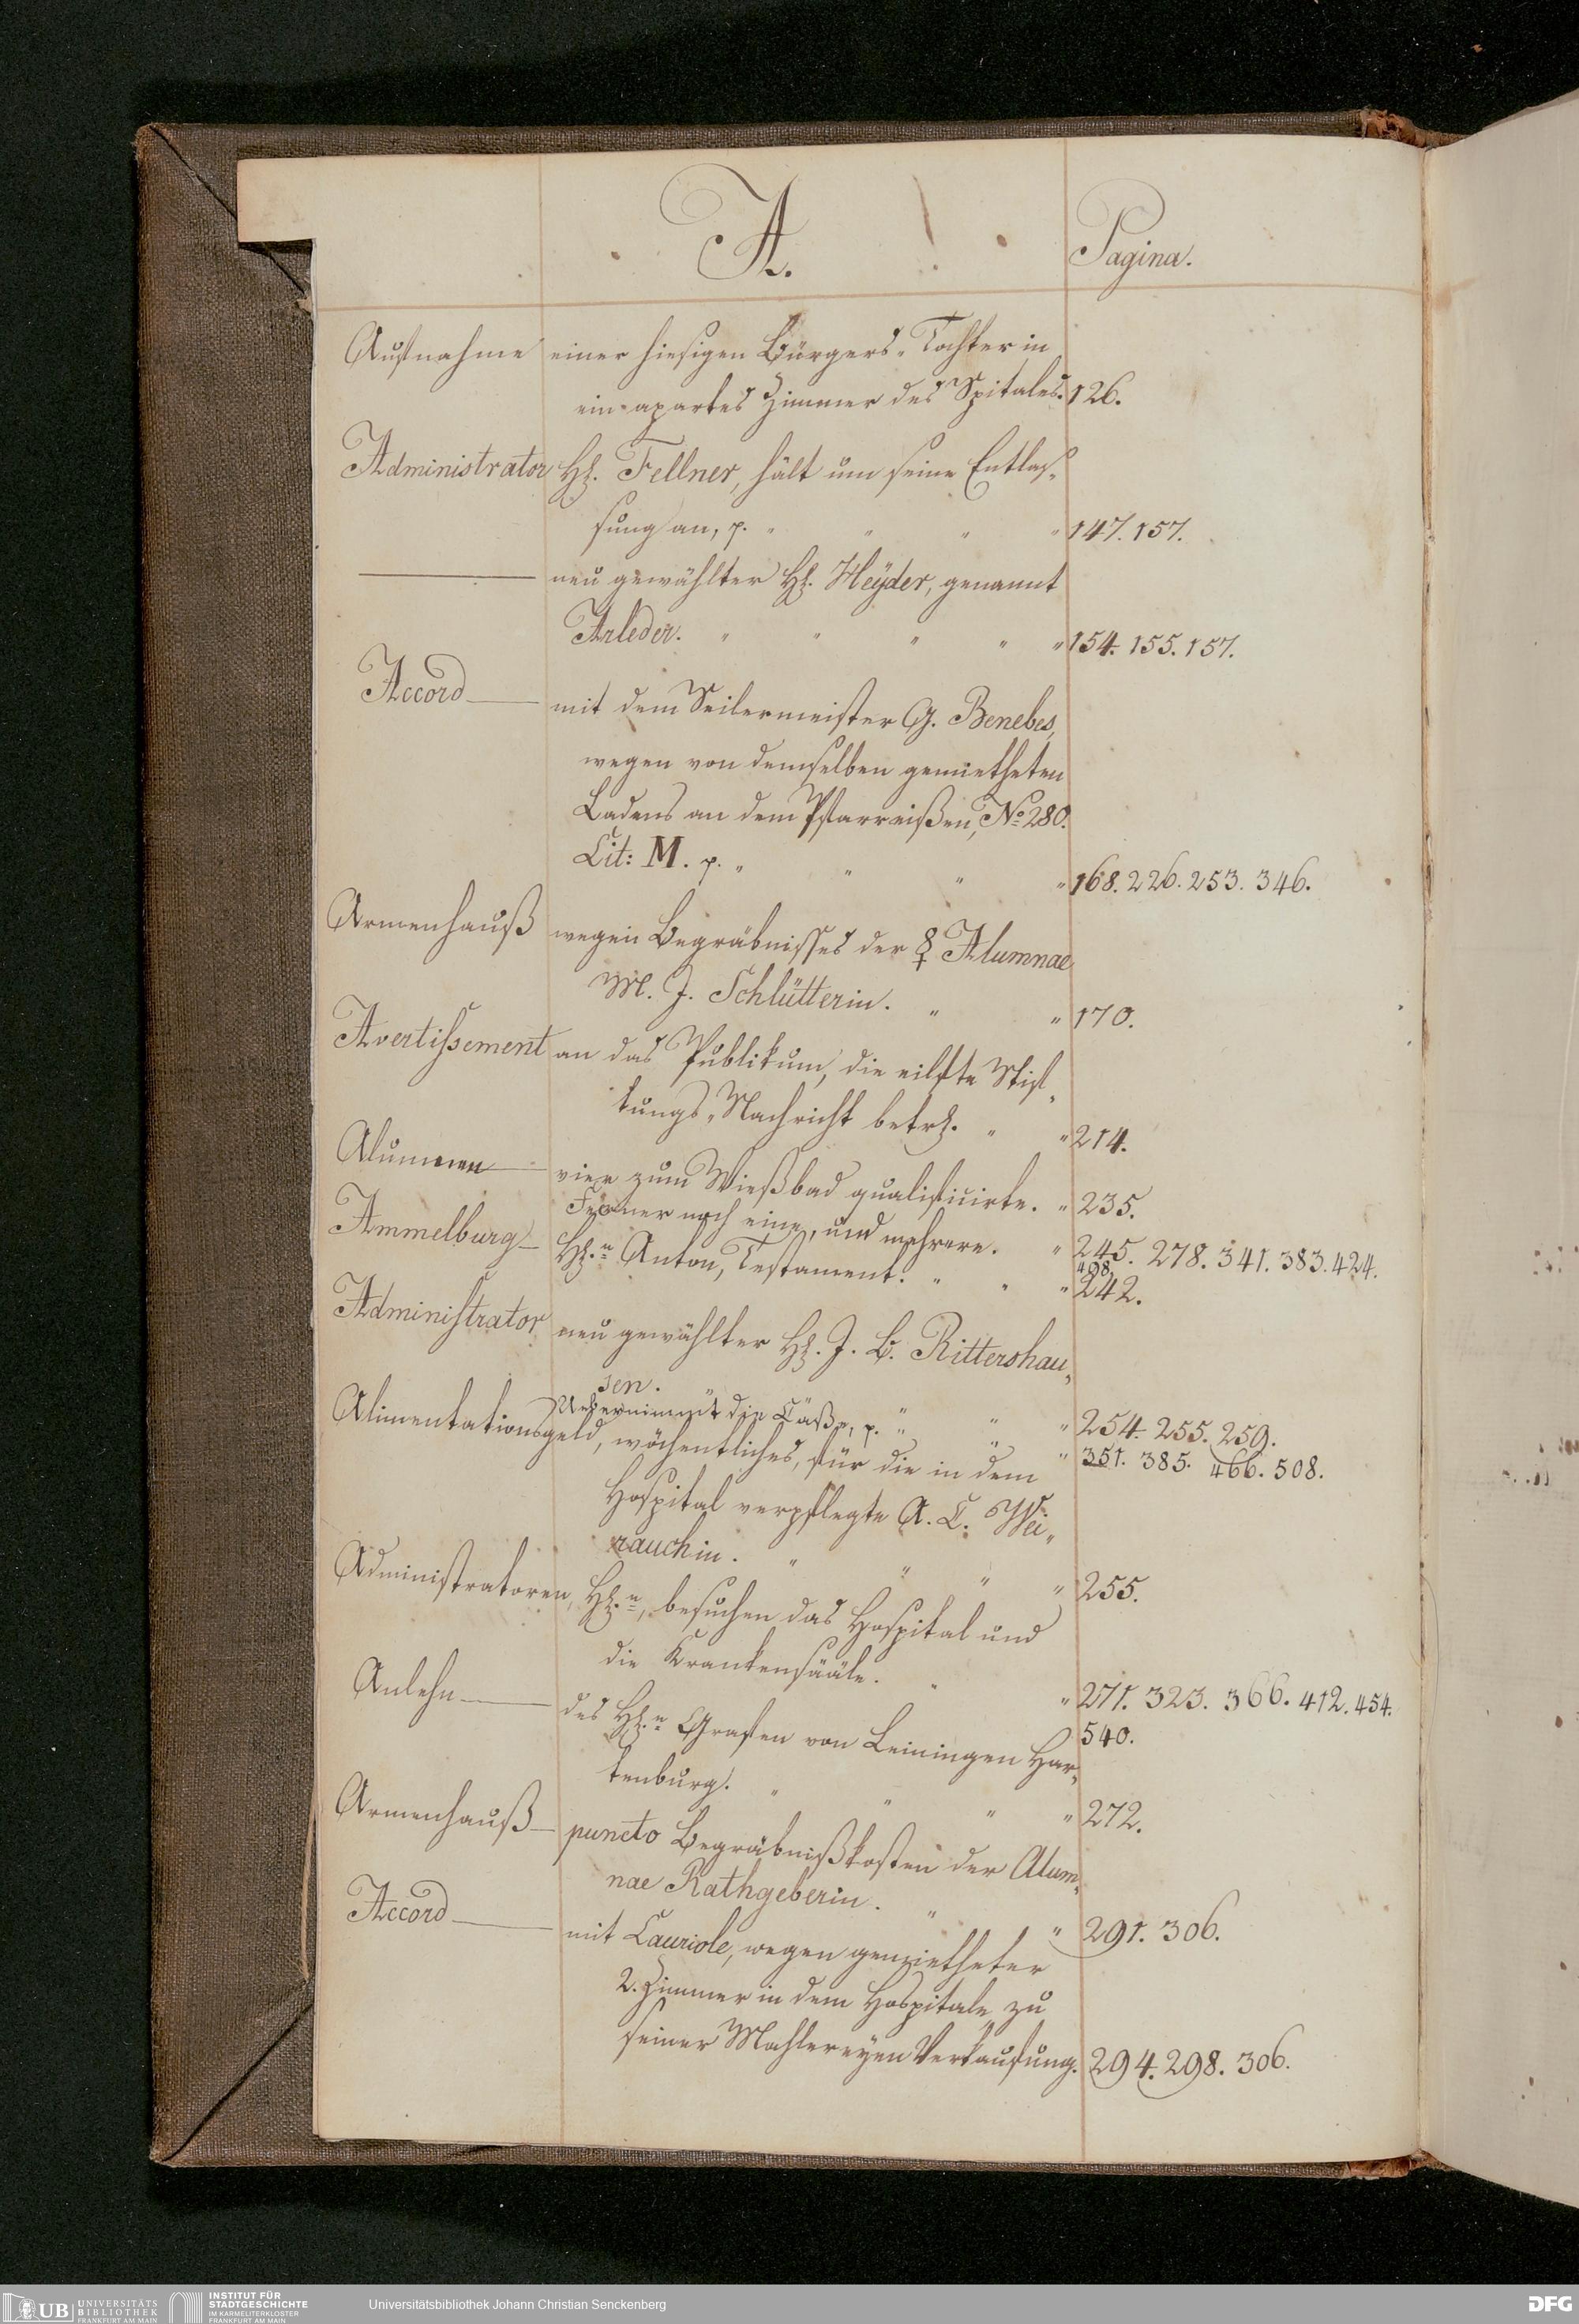 A.
Pagina.
Aufnahme einer hiesigen Bürgers-Tochter in
ein apartes Zimmer des Spitales. 126.
Administrator H. Fellner, hält um seine Entlas-
sung an, p. " " " " 147. 157.
——— neu gewählter H. Heÿder, genannt
Arleder. " " " " " 154. 155. 157.
Accord — mit dem Seilermeister G. Benebes,
wegen von demselben gemietheten
Ladens an dem Pfarreißen, No 280.
Lit: M. p. " " " " 168. 226. 253. 346.
Armenhauß wegen Begräbnisses der Alumnae
M. J. Schlütterin. " " 170.
Avertissement an das Publikum, die eilfte Stif-
tungs-Nachricht betr. " " 214.
Alumnen — vier zum Wießbad qualificirte. " 235.
Ferner noch eine, und mehrere. " 245. 278. 341. 383. 424.
498.
Ammelburg — H.n Anton, Testament. " " " 242.
Administrator neu gewählter H. J. B. Rittershau-
sen. " " " 254. 255. 259.
Uebernimmt die Caße, p. " " 351. 385. 466. 508.
Alimentationsgeld, wöchentliches, für die in dem
Hospital verpflegte A. C. Wei-
rauchin. " " " " 255.
Administratoren, H.n, besuchen das Hospital und
die Krankensääle. " " 271. 323. 366. 412. 454.
540.
Anlehn — des H.n Grafen von Leiningen Har-
tenburg. " " " " 272.
Armenhauß — puncto Begräbnißkosten der Alum-
nae Rathgeberin. " " 291. 306.
Accord — mit Cauriole, wegen gemietheter
2. Zimmer in dem Hospitale, zu
seiner Mahlereyen Verkaufung. 294. 298. 306.
UB UNIVERSITÄTS
BIBLIOTHEK
FRANKFURT AM MAIN
INSTITUT FÜR
STADTGESCHICHTE
IM KARMELITERKLOSTER
FRANKFURT AM MAIN
Universitätsbibliothek Johann Christian Senckenberg
DFG